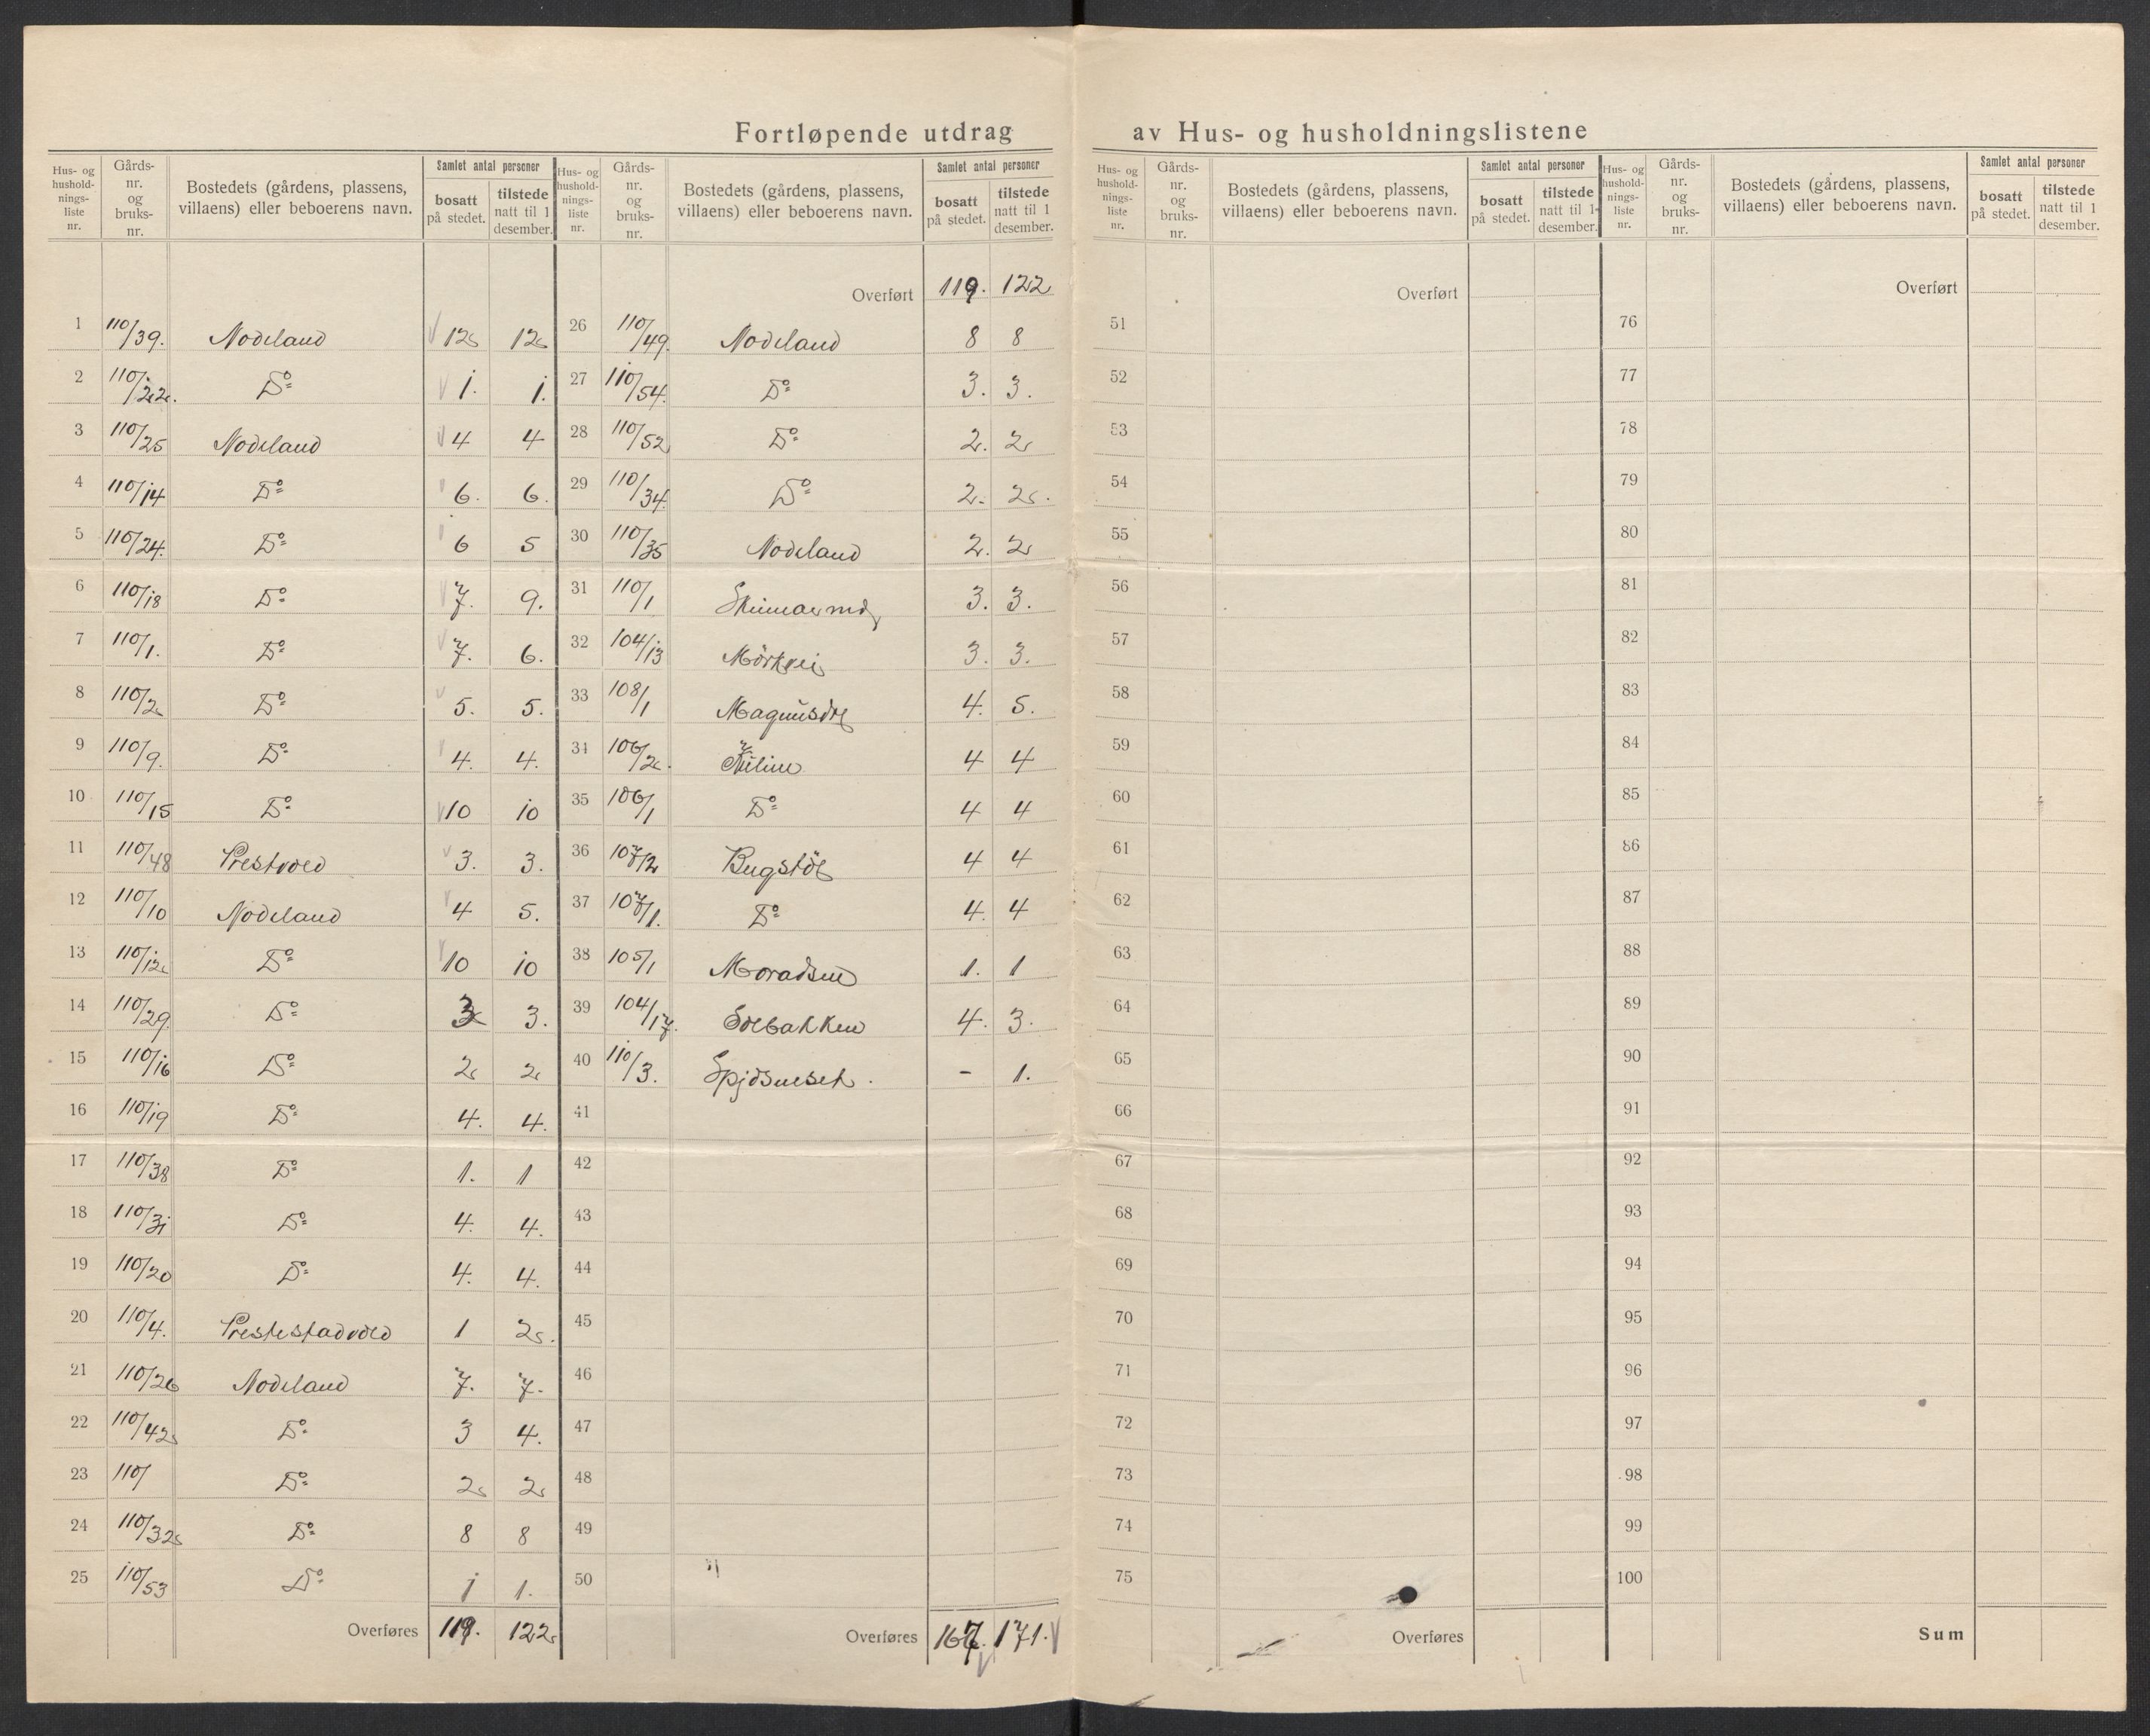 Fortløpende utdrag av Hus- og husholdningslistene
Hus- og husholdnings-liste nr. | Gårds-nr. og bruks-nr. | Bostedets (gårdens, plassens, villaens) eller beboerens navn. | Samlet antal personer | bosatt på stedet. | tilstede natt til 1 desember.
1 110/39. Nodeland 12 12
2 110/22. Do 1. 1.
3 110/25 Nodeland 4 4
4 110/14 Do 6. 6.
5 110/24. Do 6 5
6 110/18 Do 7. 9.
7 110/1. Do 7. 6.
8 110/2 Do 5. 5.
9 110/9. Do 4. 4.
10 110/15 Do 10 10
11 110/48 Prestvold 3. 3.
12 110/10 Nodeland 4 5.
13 110/12 Do 10 10
14 110/29. Do 3 3.
15 110/16 Do 2 2
16 110/19 Do 4. 4.
17 110/38 Do 1. 1
18 110/31 Do 4. 4.
19 110/20 Do 4. 4.
20 110/4. Prestestadvold 1 2.
21 110/26 Nodeland 7. 7.
22 110/42 Do 3 4.
23 110/ Do 2 2
24 110/32 Do 8 8
25 110/53 Do 1 1.
Overføres 119. 122
Hus- og husholdnings-liste nr. | Gårds-nr. og bruks-nr. | Bostedets (gårdens, plassens, villaens) eller beboerens navn. | Samlet antal personer | bosatt på stedet. | tilstede natt til 1 desember.
Overført 119. 122
26 110/49. Nodeland 8 8
27 110/54. Do 3. 3.
28 110/52 Do 2. 2
29 110/34. Do 2. 2.
30 110/35 Nodeland 2. 2
31 110/1 3. 3.
32 104/13 Mörkvei 3. 3.
33 108/1 4. 5.
34 106/2. 4 4
35 106/1 Do 4 4
36 107/2 Bugstöl 4 4
37 107/1. Do 4. 4
38 105/1 1. 1
39 104/17. Solbakken 4. 3.
40 110/3. - 1.
41
42
43
44
45
46
47
48
49
50
Overføres 167. 171.
Hus- og husholdnings-liste nr. | Gårds-nr. og bruks-nr. | Bostedets (gårdens, plassens, villaens) eller beboerens navn. | Samlet antal personer | bosatt på stedet. | tilstede natt til 1 desember.
Overført
51
52
53
54
55
56
57
58
59
60
61
62
63
64
65
66
67
68
69
70
71
72
73
74
75
Overføres
Hus- og husholdnings-liste nr. | Gårds-nr. og bruks-nr. | Bostedets (gårdens, plassens, villaens) eller beboerens navn. | Samlet antal personer | bosatt på stedet. | tilstede natt til 1 desember.
Overført
76
77
78
79
80
81
82
83
84
85
86
87
88
89
90
91
92
93
94
95
96
97
98
99
100
Sum